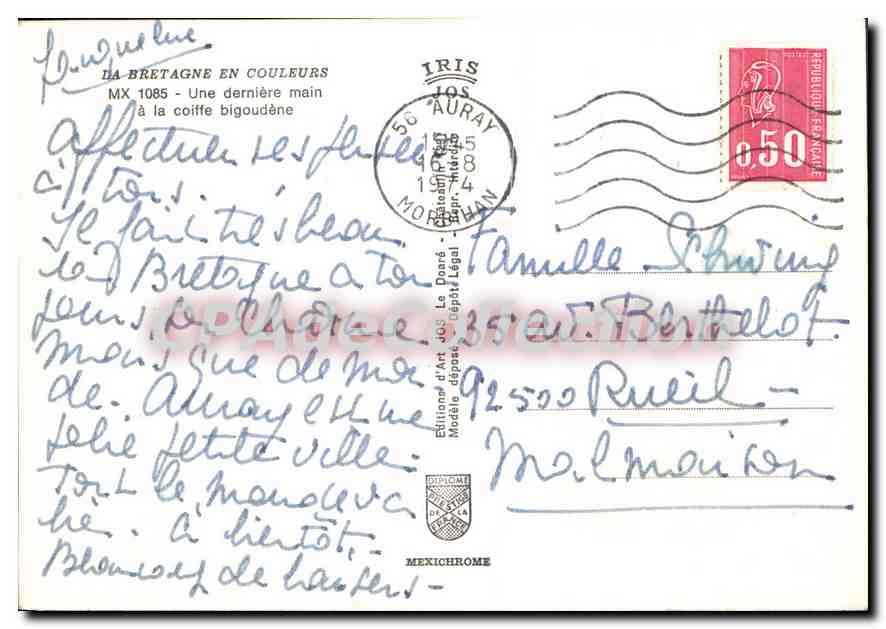 Jacqueline
LA BRETAGNE EN COULEURS
MX 1085 - Une dernière main
à la coiffe bigoudène
Affectueuses pensées
à tous.
Il fait très beau
la Bretagne a tou
jours son charme
mais que de mon
de. Auray est une
jolie petite ville.
Tout le monde va
bien. à bientôt,
Beaucoup de baisers -
IRIS
JOS
56 AURAY
1974
MORBIHAN
Editions d'Art JOS Le Doaré - Châteaulin
Modèle déposé - Dépôt Légal - Repr. Interdite
POSTES
REPUBLIQUE FRANÇAISE
0,50
Famille
35 av. Berthelot
92500 Rueil -
Malmaison
DIPLOME
PRESTIGE
DE LA
FRANCE
MEXICHROME
CPAdeCollection